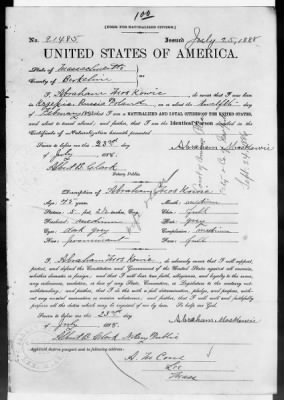 100
[FORM FOR NATURALIZED CITIZEN.]
No. 21485 Issued July 25, 1888
UNITED STATES OF AMERICA.
State of Massachusetts
County of Berkshire
I, Abraham Moskowic, do swear that I was born
Russia Poland on the twelfth
February; that I am a NATURALIZED AND LOYAL CITIZEN OF THE UNITED STATES,
and about to travel abroad; and further, that I am the Identical Person described in the
Certificate of Naturalization herewith presented.
Sworn to before me this 23rd day Abraham Moskowic
of July 188
Albert B. Clark
Notary Public.
Description of Abraham Moskowic
Age: 42 years Mouth: medium
Stature: 5 feet 2½ inches, Eng. Chin:
Forehead: medium Hair: grey
Eyes: dark grey Complexion: medium
Nose: prominent Face: full
I, Abraham Moskowic, do solemnly swear that I will support,
protect, and defend the Constitution and Government of the United States against all enemies,
whether domestic or foreign; and that I will bear true faith, allegiance, and loyalty to the same,
any ordinance, resolution, or law of any State, Convention, or Legislature to the contrary not-
withstanding; and further, that I do this with a full determination, pledge, and purpose, with-
out any mental reservation or evasion whatsoever; and further, that I will well and faithfully
perform all the duties which may be required of me by law. So help me God.
Sworn to before me this 23rd day Abraham Moskowic
of July 188
Albert B. Clark Notary Public
Applicant desires passport to be forwarded to following address:
Lee
Mass